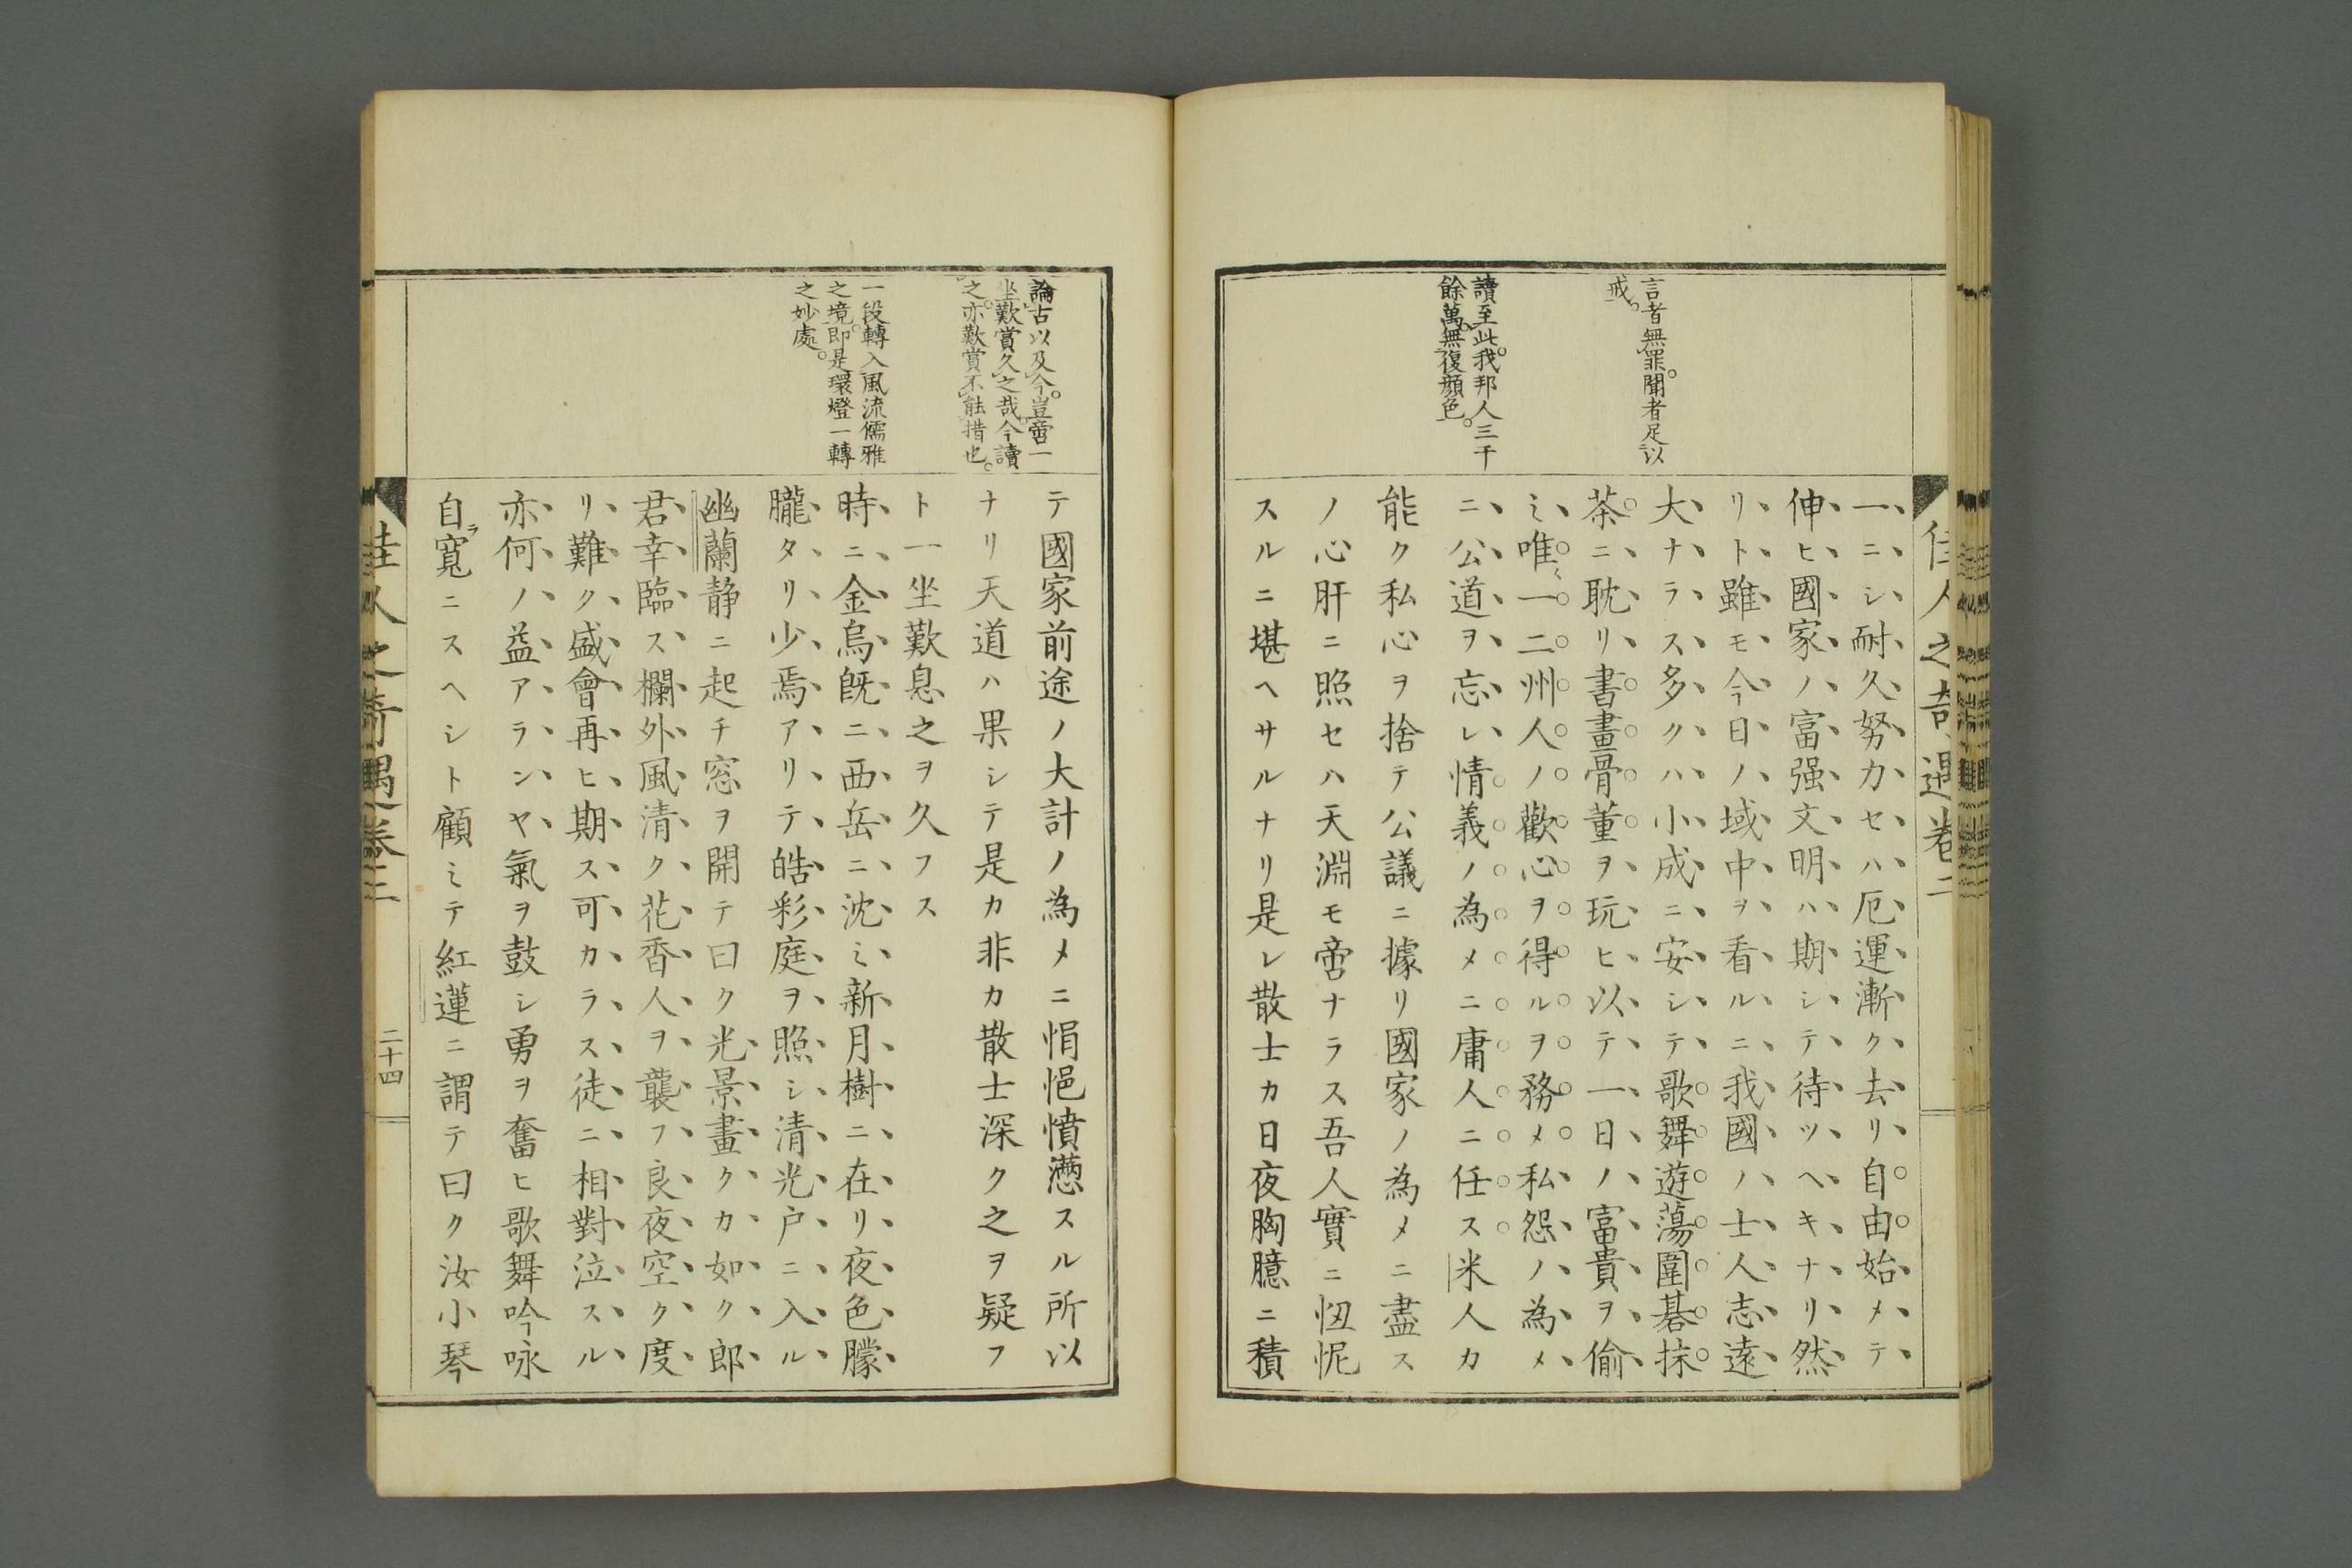 佳人之奇遇卷二
言者無罪聞者足以
戒。
讀至此我邦人三千
餘萬無復顏色。
一ニシ耐久努力セハ厄運漸ク去リ自由始メテ
伸ヒ國家ノ富强文明ハ期シテ待ツヘキナリ然
リト雖モ今日ノ域中ヲ看ルニ我國ノ士人志遠
大ナラス多クハ小成ニ安シテ歌舞遊蕩圍碁抹
茶ニ耽リ書畫骨董ヲ玩ヒ以テ一日ノ富貴ヲ偷
ミ唯々一二州人ノ歡心ヲ得ルヲ務メ私怨ノ為メ
ニ公道ヲ忘レ情義ノ為メニ庸人ニ任ス米人カ
能ク私心ヲ捨テ公議ニ據リ國家ノ為メニ盡ス
ノ心肝ニ照セハ天淵モ啻ナラス吾人實ニ忸怩
スルニ堪ヘサルナリ是レ散士カ日夜胸臆ニ積
論古以及今。豈啻一
坐歎賞久之哉。今讀
之。亦歎賞不能措也。
一段轉入風流儒雅
之境。即是環燈一轉
之妙處。
テ國家前途ノ大計ノ為メニ悁悒憤懣スル所以
ナリ天道ハ果シテ是カ非カ散士深ク之ヲ疑フ
ト一坐歎息之ヲ久フス
時ニ金烏既ニ西岳ニ沈ミ新月樹ニ在リ夜色朦
朧タリ少焉アリテ皓彩庭ヲ照シ清光户ニ入ル
幽蘭静ニ起チ窓ヲ開テ曰ク光景畫クカ如ク郎
君幸臨ス欄外風清ク花香人ヲ襲フ良夜空ク度
リ難ク盛會再ヒ期ス可カラス徒ニ相對泣スル
亦何ノ益アランヤ氣ヲ鼓シ勇ヲ奮ヒ歌舞吟咏
自ラ寬ニスヘシト顧ミテ紅蓮ニ謂テ曰ク汝小琴
佳人之奇遇卷二
二十四